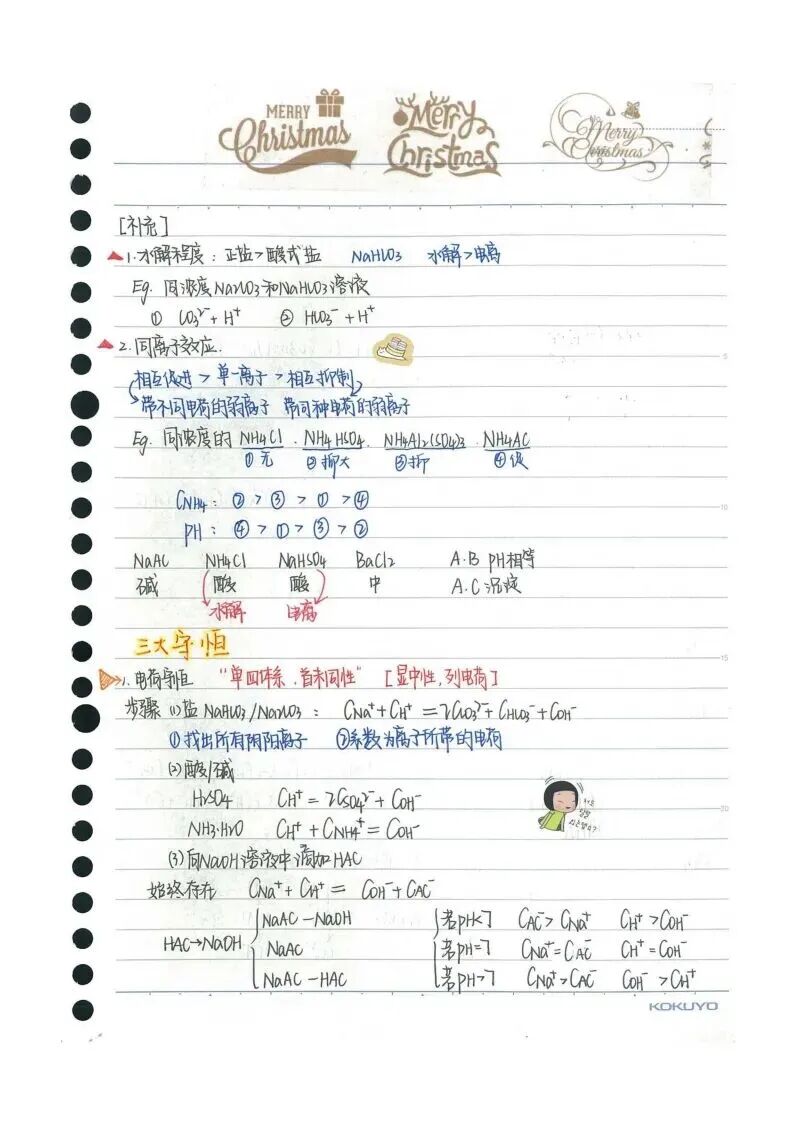 MERRY Christmas Merry Christmas Merry Christmas
[补充]
1.水解程度：正盐>酸式盐 NaHCO3 水解>电离
Eg. 同浓度Na2CO3和NaHCO3溶液
① CO3²⁻+H⁺ ② HCO3⁻+H⁺
2.同离子效应.
相互促进 > 单一离子 > 相互抑制
带不同电荷的弱离子 带同种电荷的弱离子
Eg. 同浓度的 NH4Cl . NH4HSO4. NH4Al2(SO4)3 . NH4AC
①无 ②抑大 ③抑 ④促
CNH4: ② > ③ > ① > ④
PH: ④ > ① > ③ > ②
NaAC NH4Cl NaHSO4 BaCl2 A.B PH相等
碱 酸 酸 中 A.C 沉淀
水解 电离
三大守恒
1.电荷守恒 “单四体系.首末同性” [显中性,列电荷]
步骤 (1)盐 NaHCO3/Na2CO3: CNa⁺+CH⁺=2CCO3²⁻+CHCO3⁻+COH⁻
①找出所有阴阳离子 ②系数为离子所带的电荷
(2)酸/碱
H2SO4 CH⁺=2CSO4²⁻+COH⁻
NH3·H2O CH⁺+CNH4⁺=COH⁻
(3)向NaOH溶液中滴加HAC
始终存在 CNa⁺+CH⁺= COH⁻+CAC⁻
NaAC-NaOH 若pH<7 CAC⁻>CNa⁺ CH⁺>COH⁻
HAC→NaOH NaAC 若pH=7 CNa⁺=CAC⁻ CH⁺=COH⁻
NaAC-HAC 若pH>7 CNa⁺>CAC⁻ COH⁻>CH⁺
KOKUYO
5
10
15
20